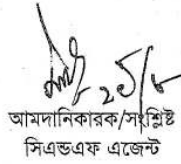 আমদানিকারক/সংশ্লিষ্ট
সিএন্ডএফ এজেন্ট